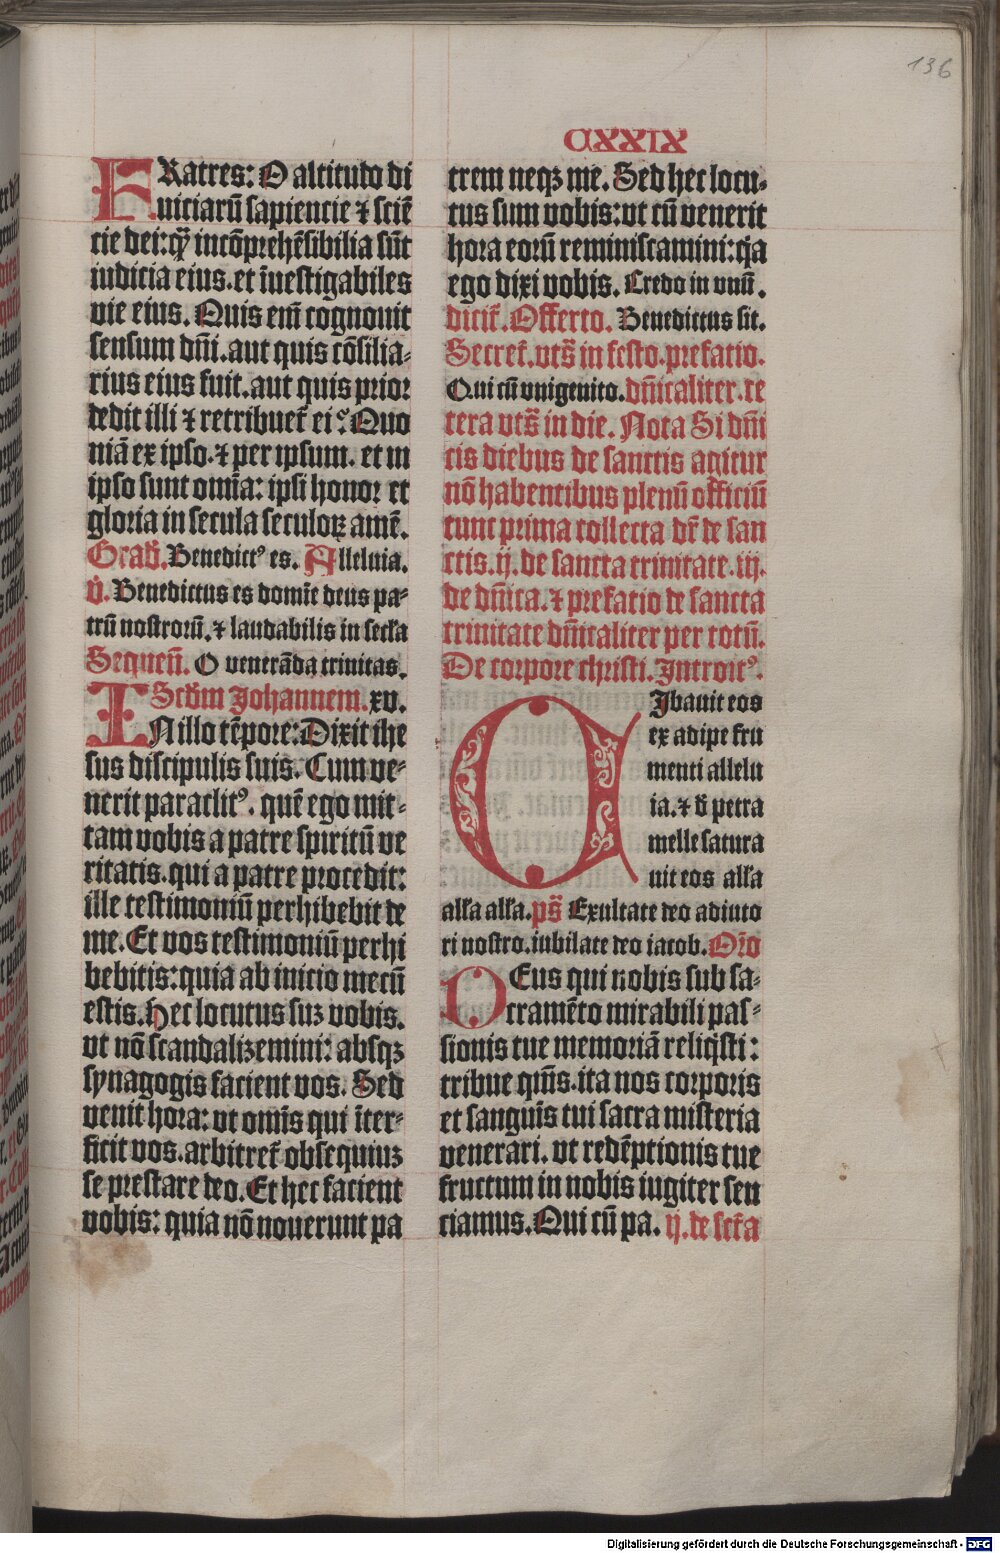 136
CXXIX
FRatres: O altitudo di
uiciarū sapiencie ⁊ sciē
cie dei: qͣ̄ incōprehēsibilia sūt
iudicia eius. et īuestigabiles
vie eius. Quis em̄ cognouit
sensum dn̄i. aut quis cōsilia⸗
rius eius fuit. aut quis prior
dedit illi ⁊ retribuet̄ ei? Quo
niā ex ipso. ⁊ per ipsum. et in
ipso sunt om̄ia: ipsi honor et
gloria in secula seculoꝝ amē.
Grad̄. Benedictꝰ es. Alleluia.
v̄. Benedictus es domīe deus pa⸗
trū nostrorū. ⁊ laudabilis in sec̄la
Sequen̄. O venerāda trinitas.
Scd̄m Johannem. xv.
INillo tēpore: Dixit ihe
sus discipulis suis. Cum ve⸗
nerit paraclitꝰ. quē ego mit⸗
tam vobis a patre spiritū ve
ritatis. qui a patre procedit:
ille testimoniū perhibebit de
me. Et vos testimoniū perhi
bebitis: quia ab inicio mecū
estis. Hec locutus suꝫ vobis.
vt nō scandalizemini: absqꝫ
synagogis facient vos. Sed
venit hora: vt omīs qui īter⸗
ficit vos. arbitret̄ obsequiuꝫ
se prestare deo. Et hec facient
vobis: quia nō nouerunt pa
trem neqꝫ me. Sed hec locu⸗
tus sum vobis: vt cū venerit
hora eorū reminiscamini: qͥa
ego dixi vobis. Credo in vnū.
dicit̄. Offerto. Benedictus sit.
Secret̄. vts̄ in festo. prefatio.
Qui cū vnigenito. dn̄icaliter. ce
tera vts̄ in die. Nota Si dn̄i
cis diebus de sanctis agitur
nō habentibus plenū officiū
tunc prima collecta dr̄ de san
ctis. ij. de sancta trinitate. iij.
de dn̄ica. ⁊ prefatio de sancta
trinitate dn̄icaliter per totū.
De corpore christi. Introitꝰ.
CIbauit eos
ex adipe fru
menti allelu
ia. ⁊ d̄ petra
melle satura
uit eos all̄a
all̄a all̄a. ps̄ Exultate deo adiuto
ri nostro. iubilate deo iacob. Or̄o
DEus qui nobis sub sa⸗
cramēto mirabili pas⸗
sionis tue memoriā reliqͥsti:
tribue qm̄s. ita nos corporis
et sanguīs tui sacra misteria
venerari. vt redēptionis tue
fructum in nobis iugiter sen
ciamus. Qui cū pa. ij. de sct̄a
Digitalisierung gefördert durch die Deutsche Forschungsgemeinschaft - DFG